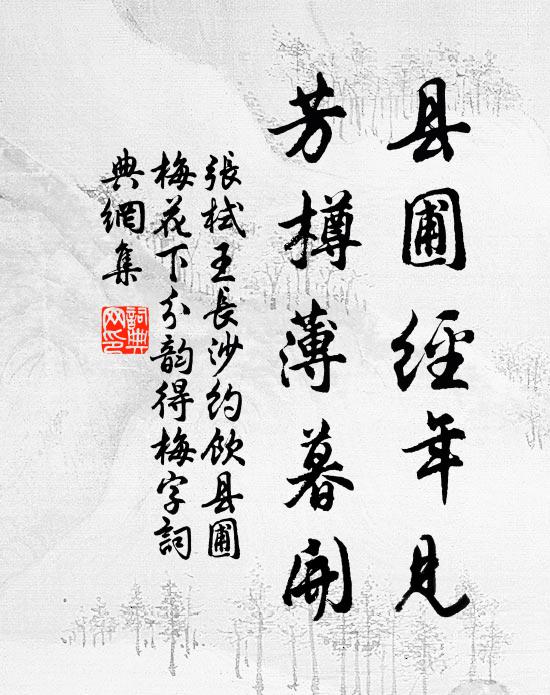 县圃經年見
芳樽薄暮開
張栻王長沙約飲县圃
梅花下分韵得梅字詞
典網集
詞典網印